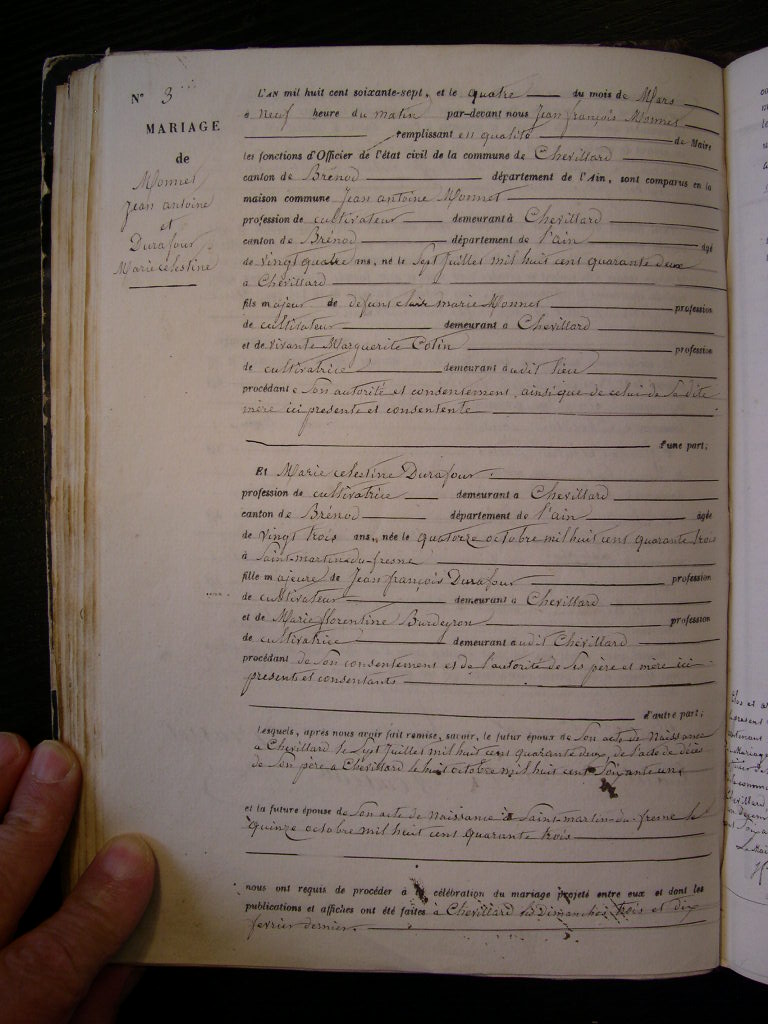 N° 3
MARIAGE
de
Monnet
Jean antoine
et
Durafour
Marie célestine
L'AN mil huit cent soixante-sept, et le quatre du mois de Mars
a neuf heure du matin par-devant nous Jean françois Monnet
remplissant en qualité de Maire
les fonctions d'Officier de l'état civil de la commune de Chevillard
canton de Brénod département de l'Ain, sont comparus en la
maison commune Jean antoine Monnet
profession de cultivateur demeurant à Chevillard
canton de Brénod département de l'ain âgé
de vingt quatre ans, né le Sept Juillet mil huit cent quarante deux
à Chevillard
fils majeur de defunt claire marie Monnet profession
de cultivateur demeurant a Chevillard
et de vivante Marguerite Cotin profession
de cultivatrice demeurant audit lieu
procédant e son autorité et consentement, ainsi que de celui de Sa dite
mère ici presente et consentente
d'une part;
Et Marie celestine Durafour
profession de cultivatrice demeurant a Chevillard
canton de Brénod département de l'ain âgée
de vingt trois ans, née le quatorze octobre mil huit cent quarante trois
à Saint-martin-du-fresne
fille majeure de Jean françois Durafour profession
de cultivateur demeurant a Chevillard
et de Marie florentine Burdeyron profession
de cultivatrice demeurant audit Chevillard
procédant de Son consentement et de l'autorité de Ses père et mère ici
presents et consentants
d'autre part;
Lesquels, après nous avoir fait remise, savoir, le futur époux de Son acte de Naissance
a Chevillard le Sept Juillet mil huit cent quarante deux, de l'acte de décès
de Son père a Chevillard le huit octobre mil huit cent Soixante un
et la future épouse de Son acte de Naissance à Saint-martin-du-fresne le
quinze octobre mil huit cent quarante trois
nous ont requis de procéder à la célébration du mariage projeté entre eux et dont les
publications et affiches ont été faites à Chevillard les Dimanches trois et dix
fevrier dernier.